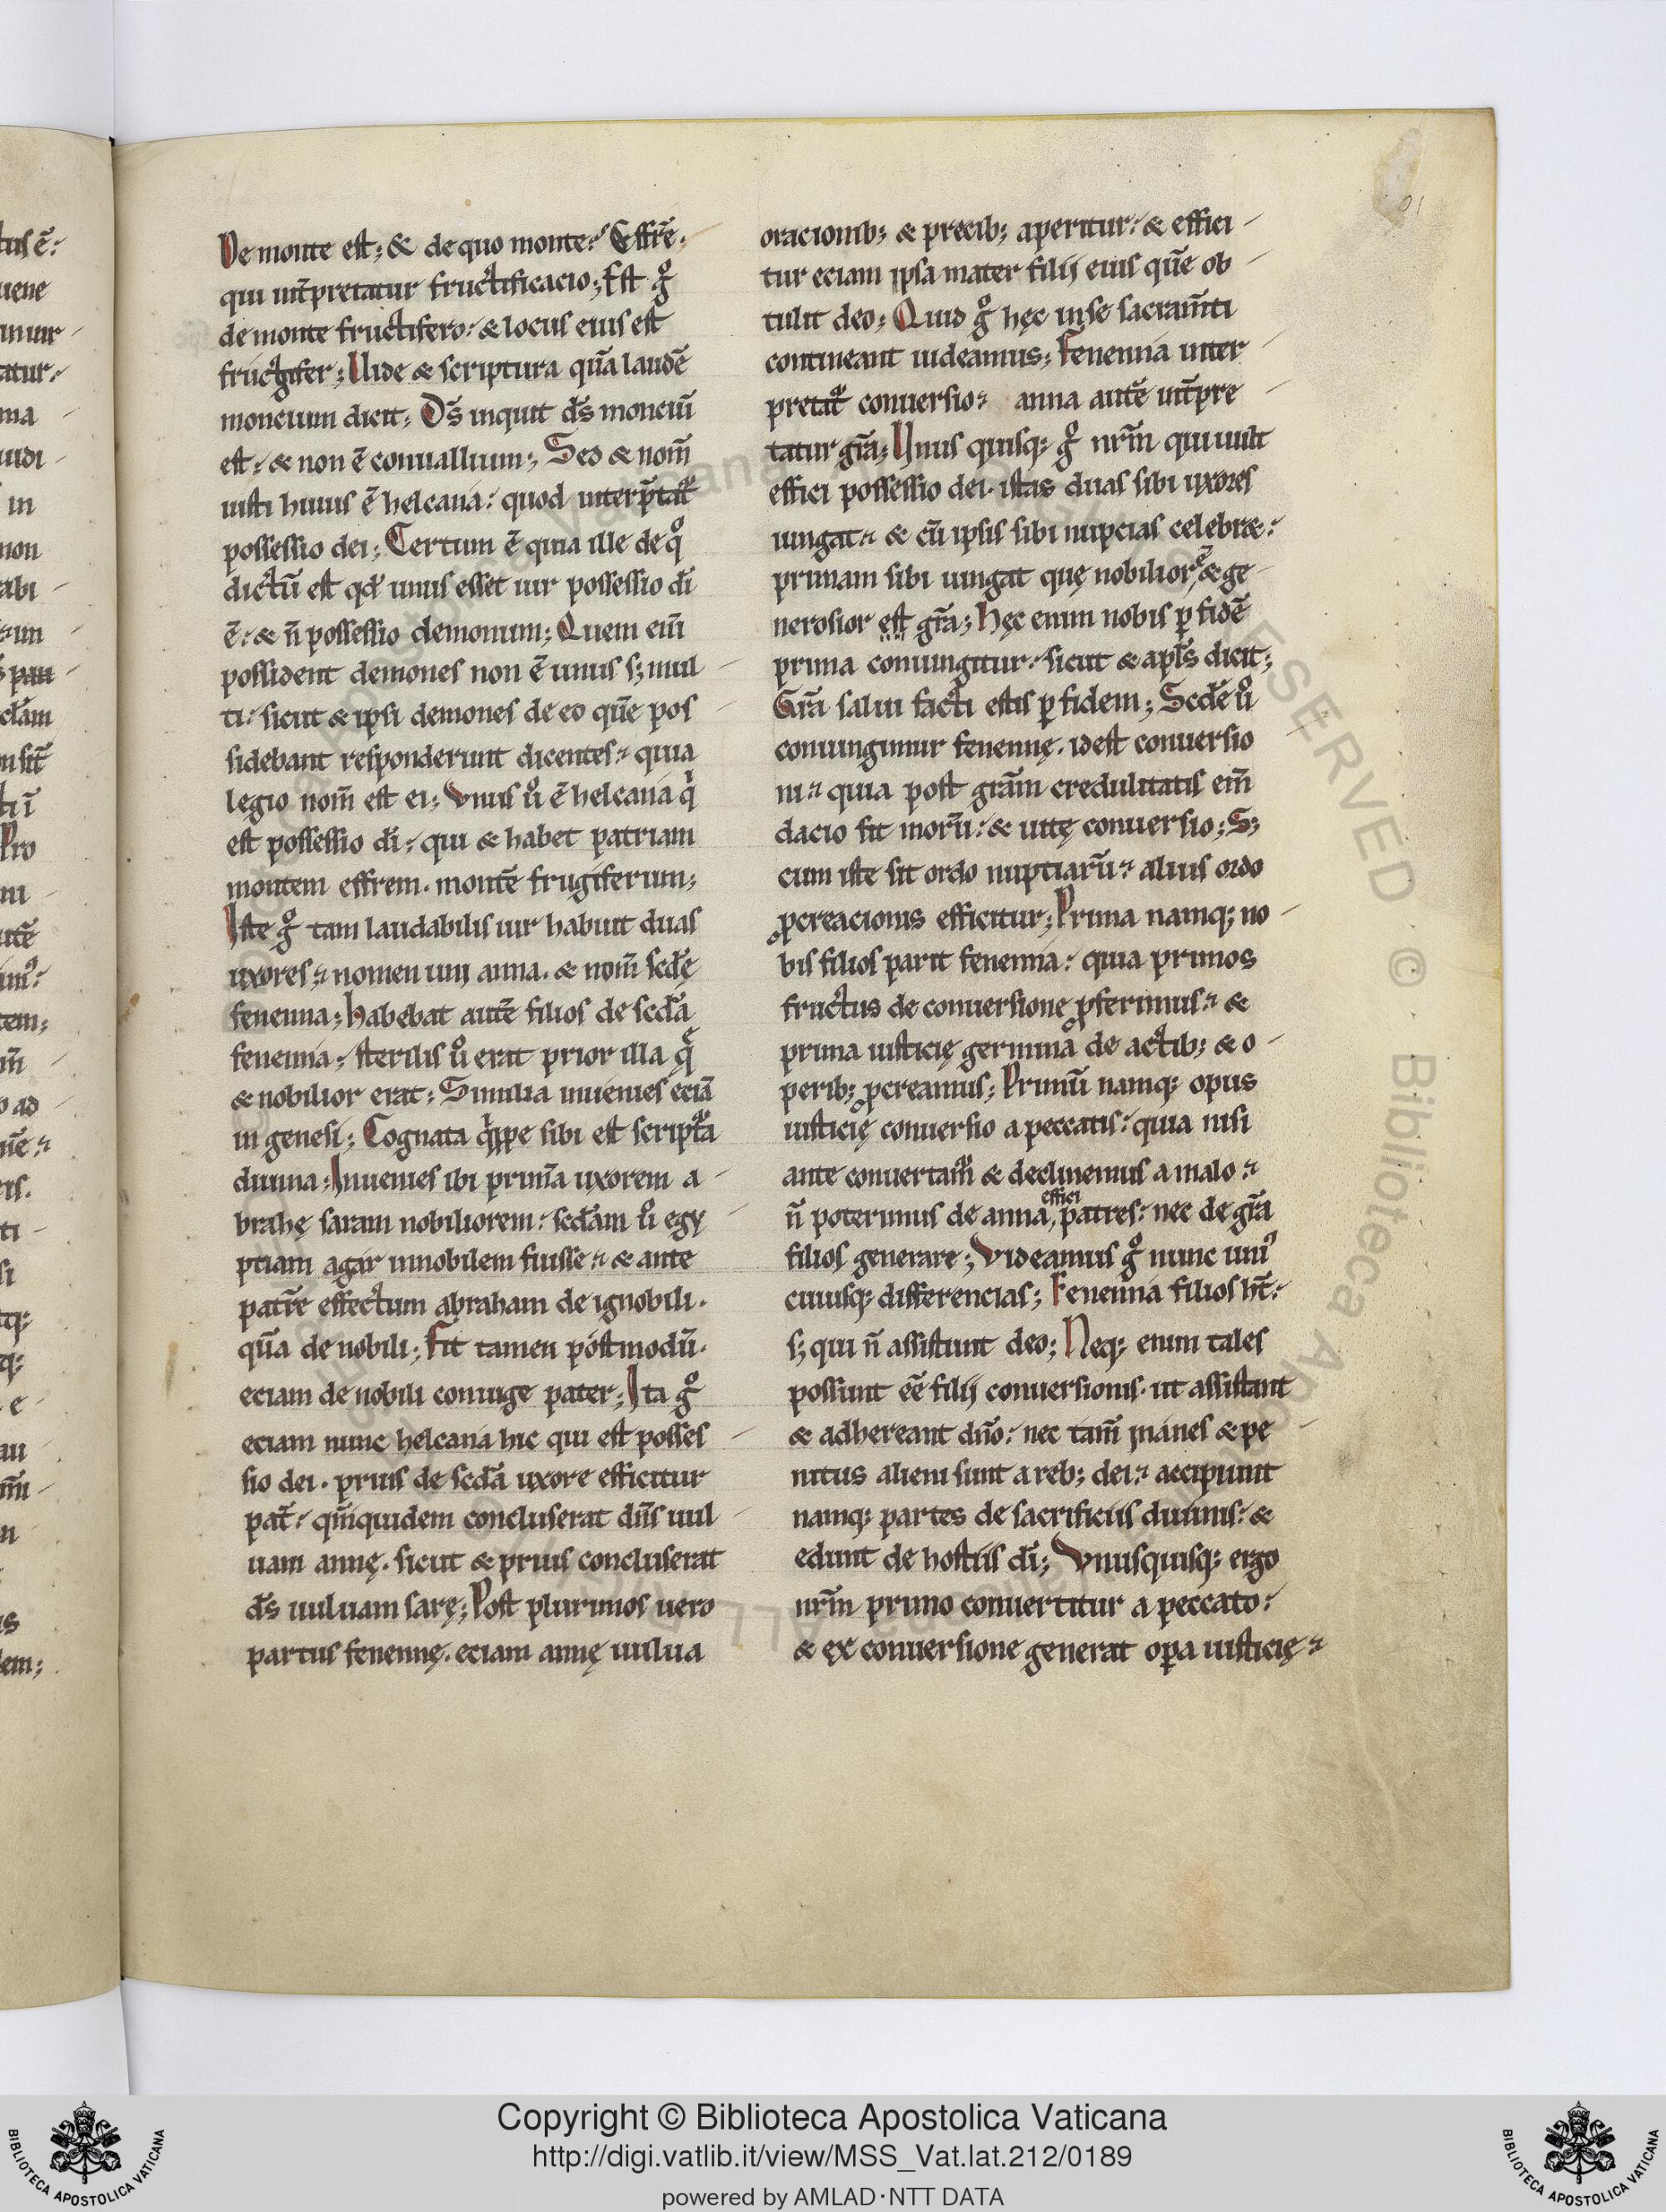 De monte est; & de quo monte? Effrē.
qui int̄pretatur fructificacio; Est gͦ
de monte fructifero. & locus eius est
fructifer; Uide & scriptura quā laudē
moncium dicit; Ds̄ inquit ds̄ monciū
est. & non ē conuallium; Sed & nom̄
iusti huius ē helcana. quod interp̄tatᷣ
possessio dei; Certum ē quia ille de qͦ
dictū est qđ unus esset uir possessio dī
ē. & n̄ possessio demonum; Quem eni̅
possident demones non ē unus s; mul
ti. sicut & ipsi demones de eo quē pos
sidebant responderunt dicentes. quia
legio nom̄ est ei; Vnus uͦ ē helcana qⁱ
est possessio dī. qui & habet patriam
montem effrem. montē frugiferum;
Iste gͦ tam laudabilis uir habuit duas
uxores. nomen uni anna. & nom̄ scđę
fenenna; Habebat autē filios de scđa
fenenna. sterilis uͦ erat prior illa qᷓ
& nobilior erat; Similia inuenies eciā
in genesi; Cognata qⁱppe sibi est scriptᷣa
diuina; Inuenies ibi primā uxorem a
brahę saram nobiliorem. scđam uͦ egy
ptiam agar innobilem fuisse. & ante
patrē effectum abraham de ignobili.
quā de nobili; Fit tamen postmodū.
eciam de nobili coniuge pater; Ita gͦ
eciam nunc helcana hic qui est posses
sio dei. prius de scđa uxore efficitur
pat̄. qm̄quidem concluserat dn̄s uul
uam annę. sicut & prius concluserat
ds̄ uuluam sarę; Post plurimos uero
partus fenennę. eciam annę uulua
oracionib; & precib; aperitur. & effici
tur eciam ipsa mater filij eius quē ob
tulit deo; Quid gͦ hęc in se sacram̄ti
contineant uideamus; Fenenna inter
pretatᷣ conuersio. anna autē int̄pre
tatur gr̄a; Unus quisq; gͦ nr̄m qui uult
effici possessio dei. istas duas sibi uxores
iungat. & cū ipsis sibi nupcias celebr&.
primam sibi iungat quę nobilior ē & ge
nerosior est gr̄a; Hęc enim nobis ꝑ fidē
prima coniungitur. sicut & apl̄s dicit;
Gr̄a salui facti estis ꝑ fidem; Scđe uͦ
coniungimur fenennę. idest conuersio
ni. quia post grām credulitatis em̄
dacio fit morū. & uitę conuersio; S;
cum iste sit ordo nuptiarū. alius ordo
ꝓcreacionis efficitur; Prima namq; no
bis filios parit fenenna. quia primos
fructus de conuersione ꝓferimus. &
prima iusticię germina de actib; & o
perib; ꝓcreamus; Primū namq; opus
iusticię conuersio a peccatis. quia nisi
ante conuertamᷣ & declinemus a malo.
n̄ poterimus de anna effici patres. nec de gr̄a
filios generare; Videamus gͦ nunc uniꝰ
cuiusq; differencias; Fenenna filios ht̄.
s; qui n̄ assistunt deo; Neq; enim tales
possunt eē filij conuersionis. ut assistant
& adhereant dn̄o. nec tam̄ inanes & pe
nitus alieni sunt a reb; dei. accipiunt
namq; partes de sacrificiis diuinis. &
edunt de hostiis dī; Vnusquisq; ergo
nr̄m primo conuertitur a peccato.
& ex conuersione generat oꝑa iusticię.
Copyright © Biblioteca Apostolica Vaticana
http://digi.vatlib.it/view/MSS_Vat.lat.212/0189
powered by AMLAD·NTT DATA